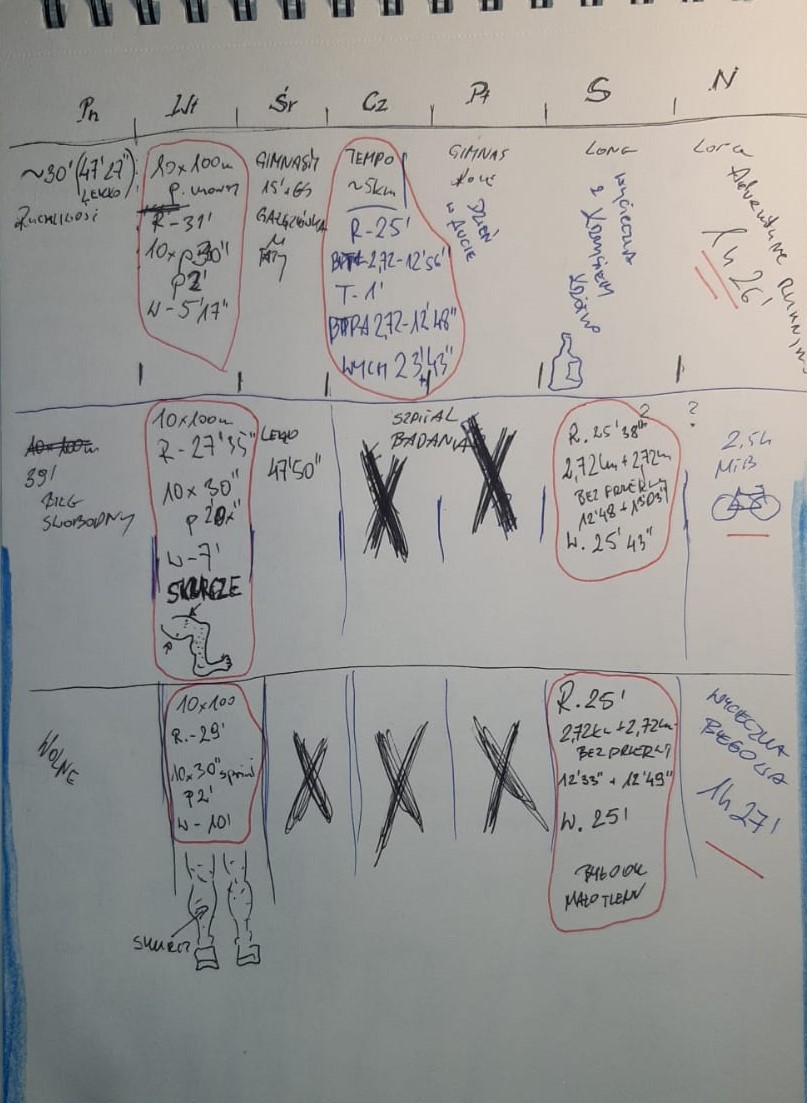 Pn Wt Śr Cz Pt S N
~30' (47'27")
LEKKO
10x100m
R-31'
10x 30"
p2'
W-5'17"
GIMNASTY
15'
TEMPO
~5km
R-25'
2,72-12'56"
T-1'
2,72-12'48"
WYCH 23'43"
GIMNAS
DZIEŃ
w AUCIE
LONG
WYCIECZKA
Z
LONG
ADVENTURE RUNNING
1h 26'
10x100m
39'
BIEG
SWOBODNY
10x100m
R-27'35"
10x30"
W-7'
SKURCZE
LEKKO
47'50"
SZPITAL
BADANIA
?
R. 25'38"
2,72km+2,72km
BEZ PRZERWY
12'48+13'03"
W. 25'43"
?
2,5h
MTB
WOLNE
10x100
R.-29'
10x30" sprint
p2'
W-10'
SKURCZ
R. 25'
2,72km+2,72km
BEZ PRZERWY
12'33" + 12'49"
W. 25'
BYŁO OK
MAŁO TLENU
WYCIECZKA
BIEGOWA
1h 27'